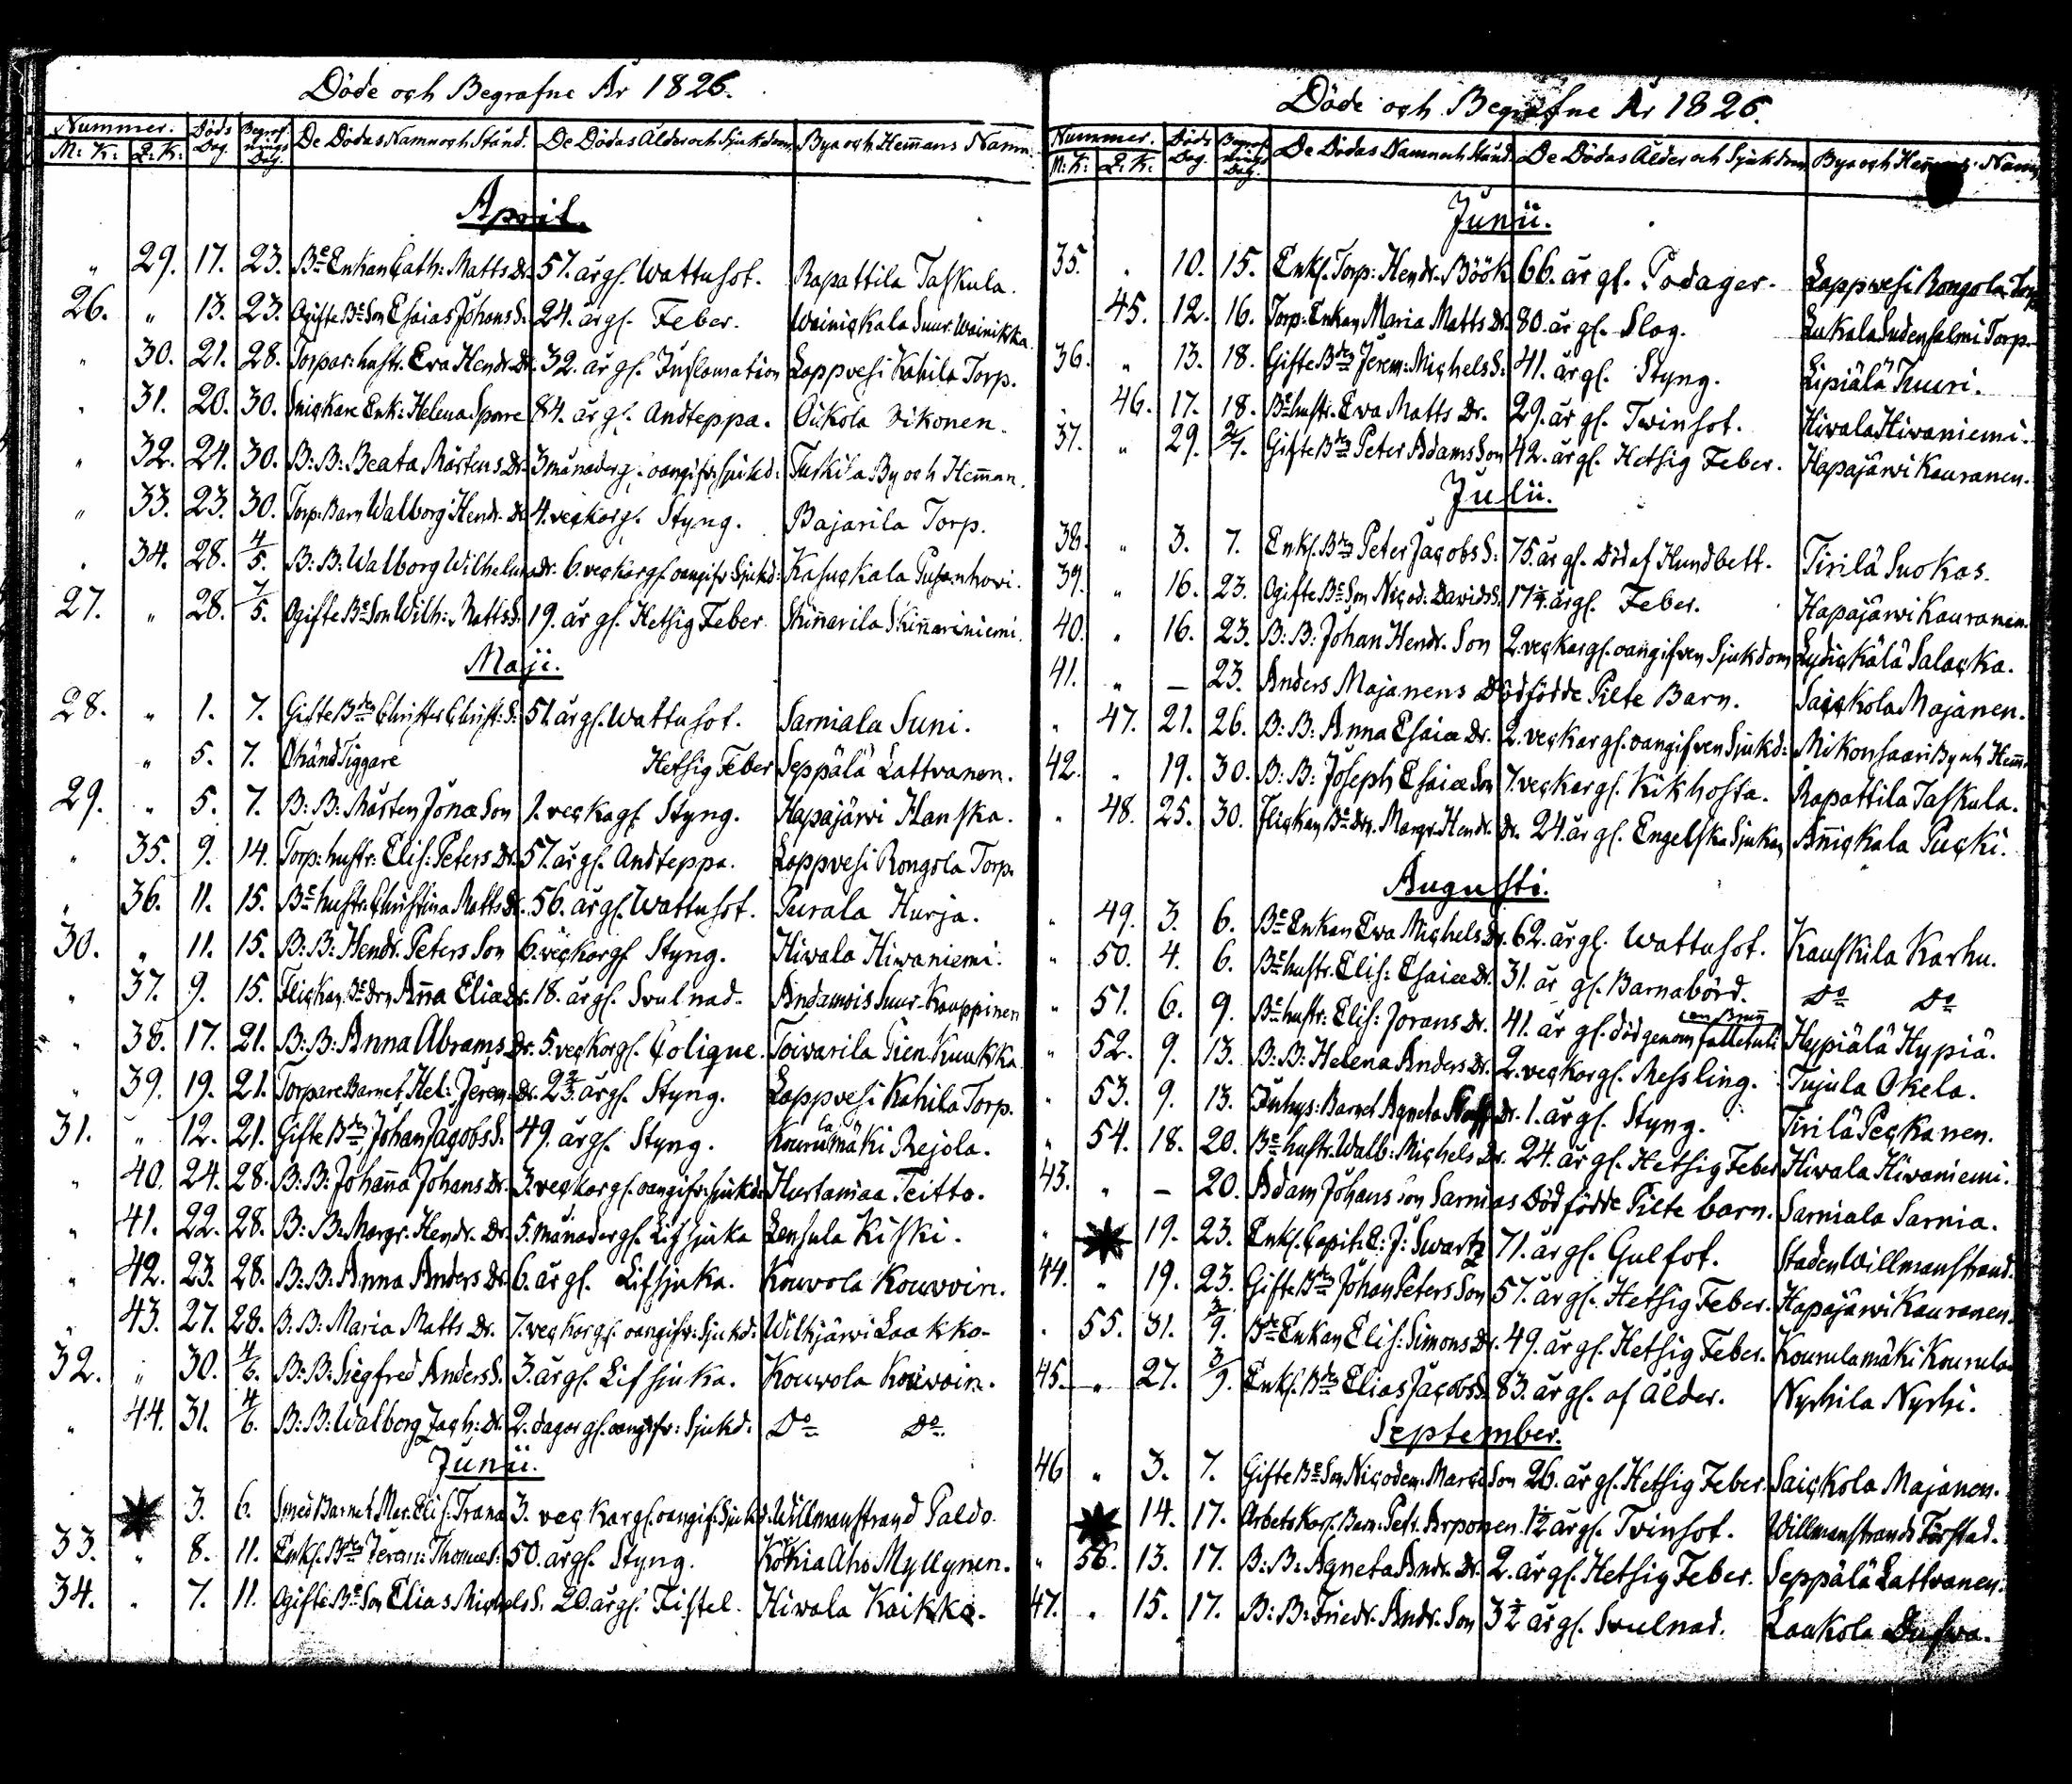 Döde och Begrafne År 1826.
Nummer. Döds Dag. Begrafnings Dag. De Dödas Namn och Stånd. De Dödas Ålder och Sjukdom. Bya och Hemans Namn.
M: K: Q: K:
April.
" 29. 17. 23. Be Enkan Cath: Matts Dr. 57. år gl. Wattusot. Rapattila Taskula.
26. " 13. 23. Ogifte Be Son Esaias Johans S. 24. år gl. Feber. Wainickala Suur-Wainikka.
" 30. 21. 28. Torpar: hustr. Eva Hendr. Dr. 32. år gl. Inflamation Lappvesi Kahila Torp.
" 31. 20. 30. Snickare Enk: Helena Spore 84. år gl. Andteppa. Oikola Zikonen.
" 32. 24. 30. B: B: Beata Mårtens Dr. 3 månader gl. oangifv: sjukd: Tuskila By och Heman.
" 33. 23. 30. Torp: Barn Walborg Hendr. Dr. 4. veckor gl. Styng. Bajarila Torp.
" 34. 28. 4/5. B: B: Walborg Wilhelms Dr. 6. veckor gl. oangifv: Sjukd: Kasuckala Pusanhovi.
27. " 28. 7/5. Ogifte Be Son Wilh: Matts S. 19. år gl. Hetsig Feber. Skinarila Skinariniemi.
Maji.
28. " 1. 7. Gifte Bdn Christer Christ: S: 51. år gl. Wattusot. Sarniala Suni.
" 5. 7. Okänd Tiggare Hetsig Feber Seppälä Lattvanen.
29. " 5. 7. B: B: Mårten Jona Son 1. vecka gl. Styng. Hapajärvi Hanska.
" 35. 9. 14. Torp: hustr: Elis: Peters Dr. 57. år gl. Andteppa. Lappvesi Rongola Torp.
" 36. 11. 15. Be hustr. Christina Matts Dr. 56. år gl. Wattusot. Purala Hurja.
30. " 11. 15. B: B: Hendr. Peters Son 6. veckor gl. Styng. Hivala Hivaniemi.
" 37. 9. 15. Flickan, Be Drn Anna Elias Dr. 18. år gl. Svulnad. Andamois Suur-Kauppinen
" 38. 17. 21. B: B: Anna Abrams Dr. 5. veckor gl. Colique. Toivarila Pien Kuukka.
" 39. 19. 21. Torpare Barnet Hel: Jerem: Dr. 2 2/3. år gl. Styng. Lappvesi Kahila Torp.
31. " 12. 21. Gifte Bdn Johan Jacobs S. 49. år gl. Styng. Kourulamäki Rejola.
" 40. 24. 28. B: B: Johana Johans Dr. 3. veckor gl. oangifv: sjukd: Hurtamaa Teitto.
" 41. 22. 28. B: B: Margr. Hendr. Dr. 5. månader gl. Lifsjuka Lensula Kiski.
" 42. 23. 28. B: B: Anna Anders Dr. 6. år gl. Lifsjuka. Kouvola Kouvoin.
" 43. 27. 28. B: B: Maria Matts Dr. 7. veckor gl. oangifv: Sjukd: Wilkjärvi Laakko.
32. " 30. 4/6. B: B: Siegfred Anders S. 3. år gl. Lifsjuka. Kouvola Kouvoin.
" 44. 31. 4/6. B: B: Walborg Zach: Dr. 2. dagar gl. oangifv: Sjukd: Do Do.
Junii.
3. 6. Smed Barnet Mar. Elis. Trana 3. veckor gl. oangif. Sjukd. Willmanstrand Paldo.
33. " 8. 11. Enkl. Bdn Jerem: Thomæ S: 50. år gl. Styng. Korkia Aho Myllynen.
34. " 7. 11. Ogifte Be Son Elias Michels S. 20. år gl. Fistel. Hivala Kaikka.
Döde och Begrafne År 1826.
Nummer. Döds Dag. Begrafnings Dag. De Dödas Namn och Stånd. De Dödas Ålder och Sjukdom. Bya och Hemans Namn
M: K: Q: K:
Junii.
35. " 10. 15. Enkl. Torp: Hendr. Böök 66. år gl. Podager. Lappvesi Rongola Torp
45. 12. 16. Torp: Enkan Maria Matts Dr. 80. år gl. Slag. Lukala Sudensalmi Torp.
36. " 13. 18. Gifte Bdn Jerem: Michels S: 41. år gl. Styng. Lipiälä Tuuri.
46. 17. 18. Be hustr. Eva Matts Dr. 29. år gl. Tvinsot. Hivala Hivaniemi.
37. " 29. 2/7. Gifte Bdn Peter Adams Son 42. år gl. Hetsig Feber. Hapajärvi Kauranen.
Julii.
38. " 3. 7. Enkl. Bdn Peter Jacobs S: 75. år gl. Död af Hundbett. Tirilä Suokas.
39. " 16. 23. Ogifte Be Son Nicod: Davids S. 17 3/4. år gl. Feber. Hapajärvi Kauranen.
40. " 16. 23. B: B: Johan Hendr. Son 2. veckor gl. oangifven Sjukdom Lydickälä Salacka.
41. " — 23. Anders Majanens Dödfödde Pilte Barn. Saickola Majanen.
" 47. 21. 26. B: B: Anna Esaiæ Dr. 2. veckor gl. oangifven Sjukd: Mikonsaari By och Hem:
42. " 19. 30. B: B: Joseph Esaiæ Son 7. veckor gl. Kikhosta. Rapattila Taskula.
" 48. 25. 30. Flickan Be Drn. Margr. Hendr. Dr. 24. år gl. Engelska Sjukan Anickala Pucki.
Augusti.
" 49. 3. 6. Be Enkan Eva Michels Dr. 62. år gl. Wattusot. Kauskila Karhu.
" 50. 4. 6. Be hustr. Elis: Esaiæ Dr. 31. år gl. Barnabörd. Do Do
" 51. 6. 9. Be hustr: Elis: Jorans Dr. 41. år gl. död genom fallet uti en Brun Hypiälä Hypiä.
" 52. 9. 13. B: B: Helena Anders Dr. 2. veckor gl. Messling. Tujula Okela.
" 53. 9. 13. Inhys: Barnet Agneta Dr. 1. år gl. Styng. Tirilä Peckanen.
" 54. 18. 20. Be hustr. Walb: Michels Dr. 24. år gl. Hetsig Feber Hivala Hivaniemi.
43. " — 20. Adam Johans son Sarnias Död födde Pilte barn. Sarniala Sarnia.
" 19. 23. Enkl. Capit. C: J: Swartz 71. år gl. Gulsot. Staden Willmanstrand.
44. " 19. 23. Gifte Bdn Johan Peters Son 57. år gl. Hetsig Feber. Hapajärvi Kauranen.
" 55. 31. 3/9. Be Enkan Elis: Simons Dr. 49. år gl. Hetsig Feber. Kourulamäki Kourula.
45. " 27. 3/9. Enkl. Bdn Elias Jacobs S. 83. år gl. af Ålder. Nyrhila Nyrhi.
September.
46 " 3. 7. Gifte Be Son Nicodem. Marci Son 26. år gl. Hetsig Feber. Saickola Majanen.
14. 17. Arbets Karl. Barn. Petr. Arponen. 1 1/2 år gl. Tvinsot. Willmanstrands Förstad.
" 56. 13. 17. B: B: Agneta Andr. Dr. 2. år gl. Hetsig Feber. Seppälä Lattvanen.
47. " 15. 17. B: B: Friedr. Andr. Son 3 1/2 år gl. Svulnad. Laakola